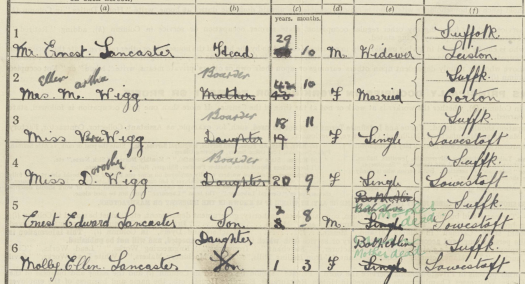 (a) (b) (c) (d) (e) (f)
years. months.
1 Suffolk.
29
Mr. Ernest Lancaster Head 10 M. Widower Leiston.
2 Ellen Boarder 42 10 Suffk.
Mrs. M. Wigg. Mother 40 F Married Corton
3 Boarder 18 11 Suffk.
Miss Vera Wigg. Daughter 19 F Single Lowestoft
4 Dorothy Boarder Suffk.
Miss D. Wigg Daughter 20 9 F Single Lowestoft
5 2 Both alive Suffk.
Ernest Edward Lancaster Son 8 M. Single Lowestoft
6 Daughter Both alive Suffk.
Molly Ellen Lancaster Son 1 3 F Single Lowestoft.